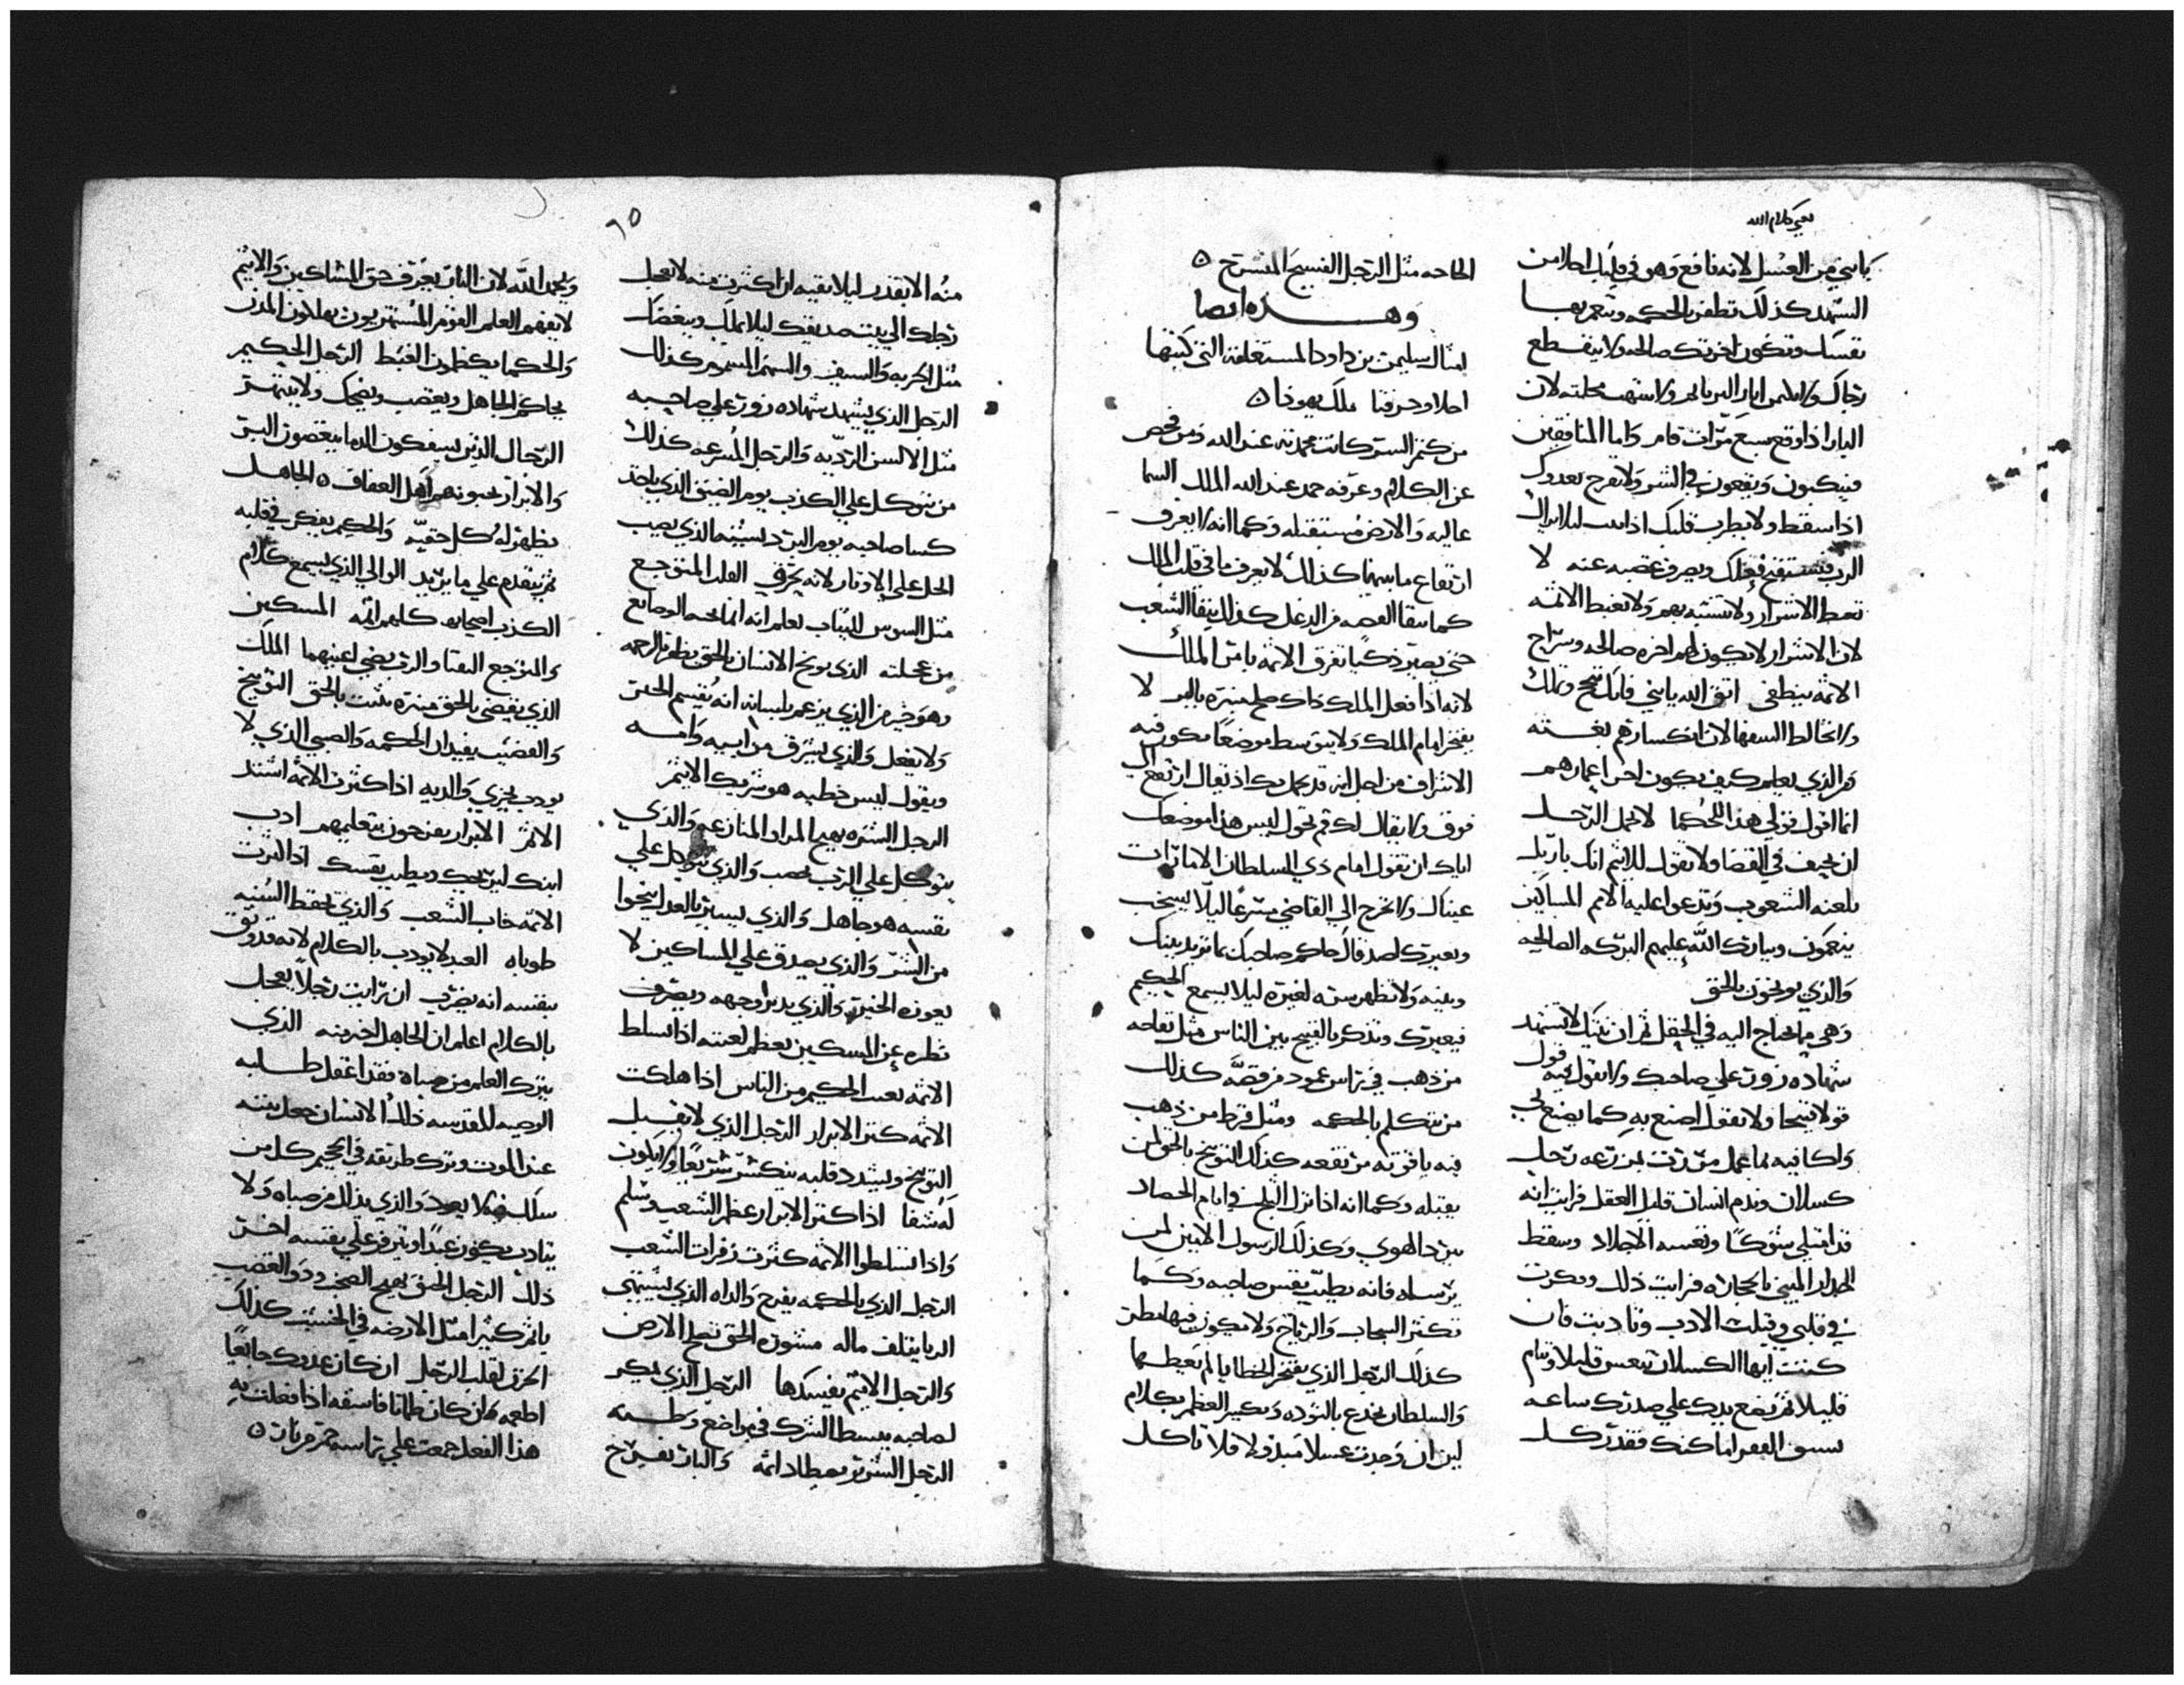 يعني كلام الله
يا بني من العسل لانه نافع وهو في قلبك احلا من
الشهد كذلك تظفر بالحكمه وتنعم بها
نفسك وتكون اخرتك صالحه ولا ينقطع
رجاك ولا البار ولا تنتهب محلته لان
البار اذا وقع سبع مرات قام واما المنافقين
فينكبون ويقعون في الشر ولا تفرح بعدوك
اذا سقط ولا يطرب قلبك اذا
الرب ويصرف غضبه عنه لا
تغبط الاشرار ولا تتشبه بهم ولا تغبط الاثمه
لان الاشرار لا تكون لهم اخره صالحه وسراج
الاثمه ينطفي اتق الله يا بني فانك تنجح وتملك
ولا تخالط السفها لان انكسارهم بغسته
ومن الذي يعلم كيف يكون اخر اعمارهم
انما اقول قولي هذا للحكما لا يحمل الرجل
ان يحيف في القضا ولا تقول للاثيم انك بار
تلعنه الشعوب وتدعوا عليه الامم المساكين
ينعمون ويبارك الله عليهم البركه الصالحه
والذي يوبخون بالحق
وهي ما يحتاج اليه في الحقل ثم ان بيتك لا تشهد
شهاده زور علي صاحبك ولا تقول فيه قول
قولا قبيحا ولا تقول اصنع به كما يصنع لي
واكافيه بما عمل مررت بمزرعه رجل
كسلان وندم انسان قليل العقل فرايت انه
قد امتلي شوكا وسقط
الجدار المبني بالحجاره فرايت ذلك وفكرت
في قلبي وقبلت الادب وتاديت فان
كنت ايها الكسلان تنعس قليلا وتنام
قليلا ثم تضع يدك علي صدرك ساعه
سبق الفقر اماكنك فقد ركل
الحاجه مثل الرجل الفسيح المنسرح ه
وهذه ايضا
امثال سليمن بن داود المستغلقه التي كتبها
احلا وحزقيا ملك يهوذا ه
من كتم السر كانت محمدته عند الله ومن فحص
عن الكلام وعرفه حمد عند الملك السما
عاليه والارض مستقبله وكما انه لا يعرف
ارتفاع ما بينهما كذلك لا يعرف ما في قلب الملك
كما تنقا الفضه من الدغل كذلك ينقا الشعب
حتي يصير ذكيا تفرق الاثمه بامر الملك
لانه اذا فعل الملك ذاك صلح منبره بالبر لا
يفتخر امام الملك ولا يتوسط موضعا يكون فيه
الاشراف من اجل انه قد يحمل بك اذ يقال ارتفع الي
فوق ولا يقال لك قم تحول ليس هذا موضعك
اياك ان تقول امام ذي السلطان الا ما رات
عيناك ولا تخرج الي القاضي مسرعا ليلا يسخب
ويعيرك اصدقاك حاكم صاحبك بما تريد بينك
وبينه ولا تظهر سره لغيره ليلا يسمع الحكيم
فيعيرك وتذكر بالقبيح بين الناس مثل تفاحه
من ذهب في راس عمود من فضه كذلك
من يتكلم بالحكمه ومثل قرط من ذهب
فيه ياقوته مرتفعه كذلك التوبيخ بالحق لمن
يقبله وكما انه اذا نزل الثلج في ايام الحصاد
يبرد الهوي وكذلك الرسول الامين لمن
يرسله فانه يطيب نفس صاحبه وكما
تكثر السحاب والرياح ولا يكون فيها مطر
كذلك الرجل الذي يفتخر بالعطايا لم يعطها
والسلطان يخدع بالتوده وتكسر العظم بكلام
لين ان وجدت عسلا مبذولا فلا تاكل
٦٥
منه الا بقدر ليلا تقيه ان اكثرت منه لا تعجل
رجلك الي بيت صديقك ليلا يملك ويبغضك
مثل الحربه والسيف والسهم المسموم كذلك
الرجل الذي يشهد شهاده زور علي صاحبه
مثل الاسن الرديه والرجل المسرعه كذلك
من يتوكل علي الكذب يوم الضيق الذي ياخذ
كسا صاحبه يوم البرد يشبه الذي يصب
الخل علي الاوتار لانه يحرق القلب المتوجع
مثل السوس للثياب
من عجلته الذي يوبخ الانسان بالحق يظفر بالرحمه
وهو خير من الذي يزعم بلسانه انه يقسم الخير
ولا يفعل والذي يسرق من ابيه وامه
ويقول ليس خطيه هو شريك الاثيم
الرجل الشره يهيج المرا والمنازعه والذي
يتوكل علي الرب يخصب والذي يتوكل علي
نفسه هو جاهل والذي يسير بالعدل ينجوا
من الشر والذي يصدق علي المساكين لا
يعوزه الخير والذي يدير وجهه ويصرف
نظره عن المسكين تعظم لعنته اذا تسلط
الاثمه يغيب الحكيم من الناس اذا هلكت
الاثمه كثر الابرار الرجل الذي لا يقبل
التوبيخ ويشدد قلبه ينكسر سريعا ولا يكون
له شفا اذا كثر الابرار عظم الشعب وسلم
واذا تسلطوا الاثمه كثرت زفرات الشعب
الرجل الذي بالحكمه يفرح والداه الذي يشتهي
الربا يتلف ماله مشوره الحق تصلح الارض
والرجل الاثيم يفسدها الرجل الذي يمكر
لصاحبه يبسط الشرك في مواضع وطيه
الرجل الشرير يصطاد اثمه والبار يفرح
ويحمد الله لان البار يعرف حق المساكين والاثيم
لا يفهم العلم القوم المستهزيون يهلكون المدن
والحكما يكظمون الغيظ الرجل الحكيم
يحاكم الجاهل ويغضب ويضحك ولا ينتهر
الرجال الذين يسفكون الدما يبغضون البر
والابرار يحبونهم اهل العفاف ه الجاهل
يظهر له كل حقيه والحكيم يفكر في قلبه
ثم يتقدم علي ما يريد الوالي الذي يسمع كلام
الكذب اصحابه كلهم اثمه المسكين
والمتوجع التقيا والرب يضي اعينهما الملك
الذي يقضي بالحق منبره يثبت بالحق التوبيخ
والقضيب يفيدان الحكمه والصبي الذي لا
يودب يخزي والديه اذا كثرت الاثمه اشتد
الاثم الابرار يفرحون بتعليمهم ادب
ابنك ليريحك ويطيب نفسك اذا كثرت
الاثمه خاب الشعب والذي يحفظ السنه
طوباه العبد لا يودب بالكلام لانه قد وثق
بنفسه انه يضرب ان رايت رجلا يعجل
بالكلام اعلم ان الجاهل اخير منه الذي
يترك العلم من صباه فقد اغفل طلبه
الوصيه المقدسه ذلك الانسان جعل بيته
عند الموت وترك طريقه في الجحيم كل من
سلك فيه لا يعود والذي يدلل من صباه ولا
يتادب يكون عبدا ويزفر علي نفسه اخر
ذلك الرجل الحنق يهيج الصخب وذو الغضب
ياثم كثيرا مثل الارضه في الخشب كذلك
الحزن لقلب الرجل ان كان عدوك جايعا
اطعمه وان كان ظمانا فاسقه اذا فعلت به
هذا الفعل جمعت علي راسه جمر نار ه